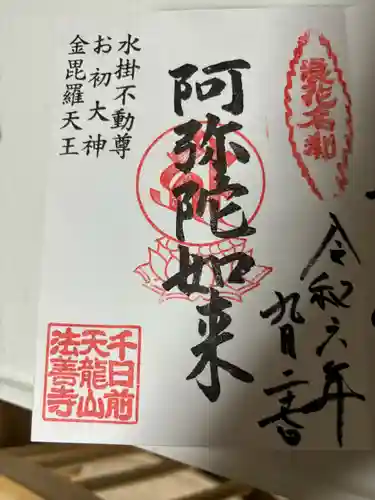 令和六年
九月二十一日
阿弥陀如来
水掛不動尊
お初大神
金毘羅天王
千日前
天龍山
法善寺